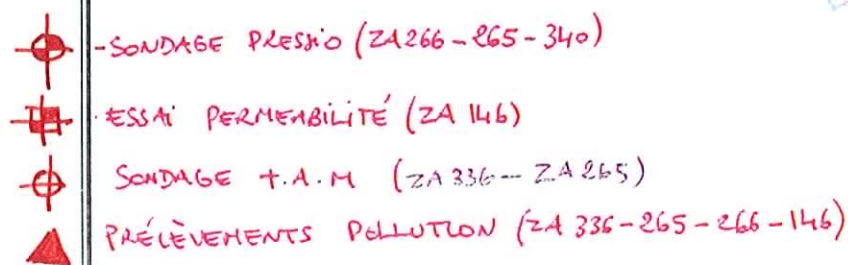 -SONDAGE PRESSIO (ZA266-265-340)
-ESSAi PERMEABiLiTÉ (ZA 146)
SONDAGE T.A.M (ZA 336-- ZA 265)
PRÉLÈVEMENTS POLLUTION (ZA 336-265-266-146)